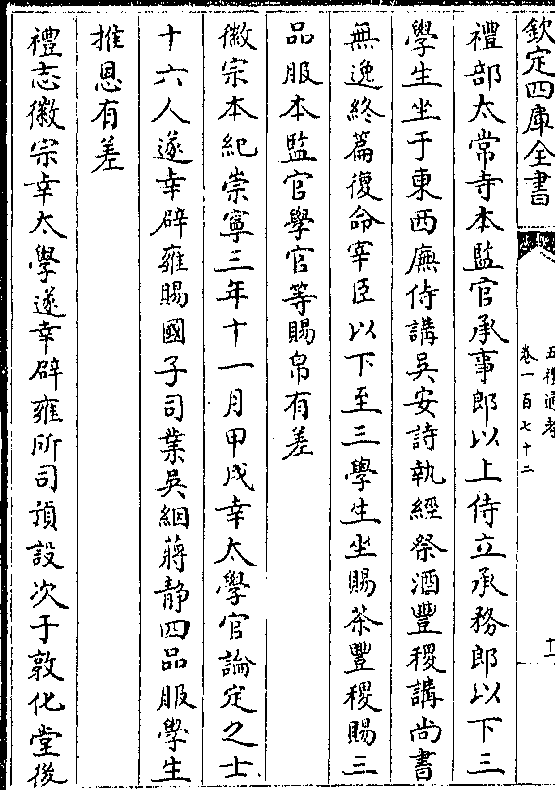 欽定四庫全書
五禮通考
卷一百七十二
十一
禮部太常寺本監官承事郎以上侍立承務郎以下三
學生坐于東西廡侍講吳安詩執經祭酒豐稷講尚書
無逸終篇復命宰臣以下至三學生坐賜茶豐稷賜三
品服本監官學官等賜帛有差
徽宗本紀崇寧三年十一月甲戌幸太學官論定之士
十六人遂幸辟雍賜國子司業吳絪蔣静四品服學生
推恩有差
禮志徽宗幸太學遂幸辟雍所司預設次于敦化堂後